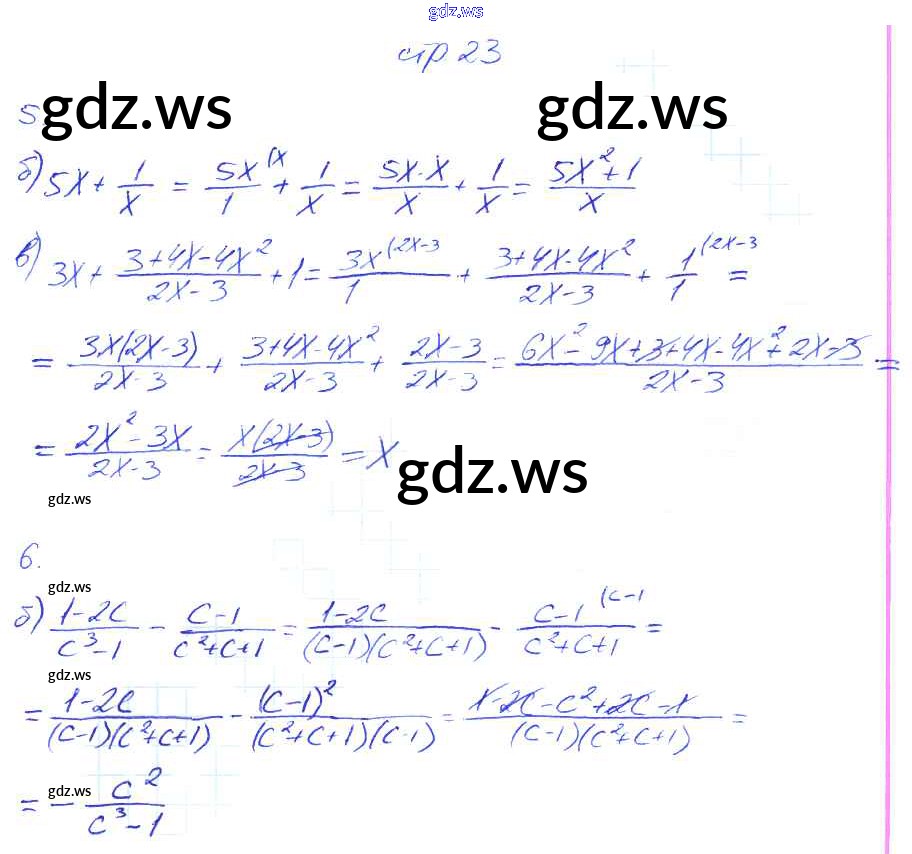 gdz.ws
стр 23
5 gdz.ws gdz.ws
б) 5x + 1/x = 5x/1 (x + 1/x = 5x·x/x + 1/x = (5x²+1)/x
в) 3x + (3+4x-4x²)/(2x-3) + 1 = 3x/1 (2x-3 + (3+4x-4x²)/(2x-3) + 1/1 (2x-3 =
= 3x(2x-3)/(2x-3) + (3+4x-4x²)/(2x-3) + (2x-3)/(2x-3) = (6x²-9x+3+4x-4x²+2x-3)/(2x-3) =
= (2x²-3x)/(2x-3) = x(2x-3)/(2x-3) = x
gdz.ws
gdz.ws
6.
gdz.ws
б) (1-2c)/(c³-1) - (c-1)/(c²+c+1) = (1-2c)/((c-1)(c²+c+1)) - (c-1)/(c²+c+1) (c-1 =
gdz.ws
= (1-2c)/((c-1)(c²+c+1)) - (c-1)²/((c²+c+1)(c-1)) = (1-2c-c²+2c-1)/((c-1)(c²+c+1)) =
gdz.ws
= - c²/(c³-1)